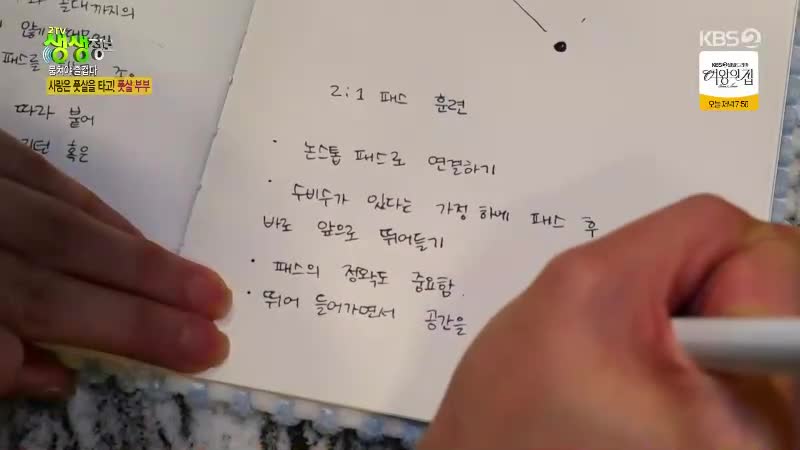 2TV
생생정
뭉쳐야 즐겁다
사랑은 풋살을 타고! 풋살 부부
KBS2
KBS2
여왕의 집
오늘 저녁 7:50
않기
패스를
따라 붙어
리턴 혹은
2:1 패스 훈련
· 논스톱 패스로 연결하기
· 수비수가 있다는 가정 하에 패스 후
바로 앞으로 뛰어들기
· 패스의 정확도 중요함.
· 뛰어 들어가면서 공간을